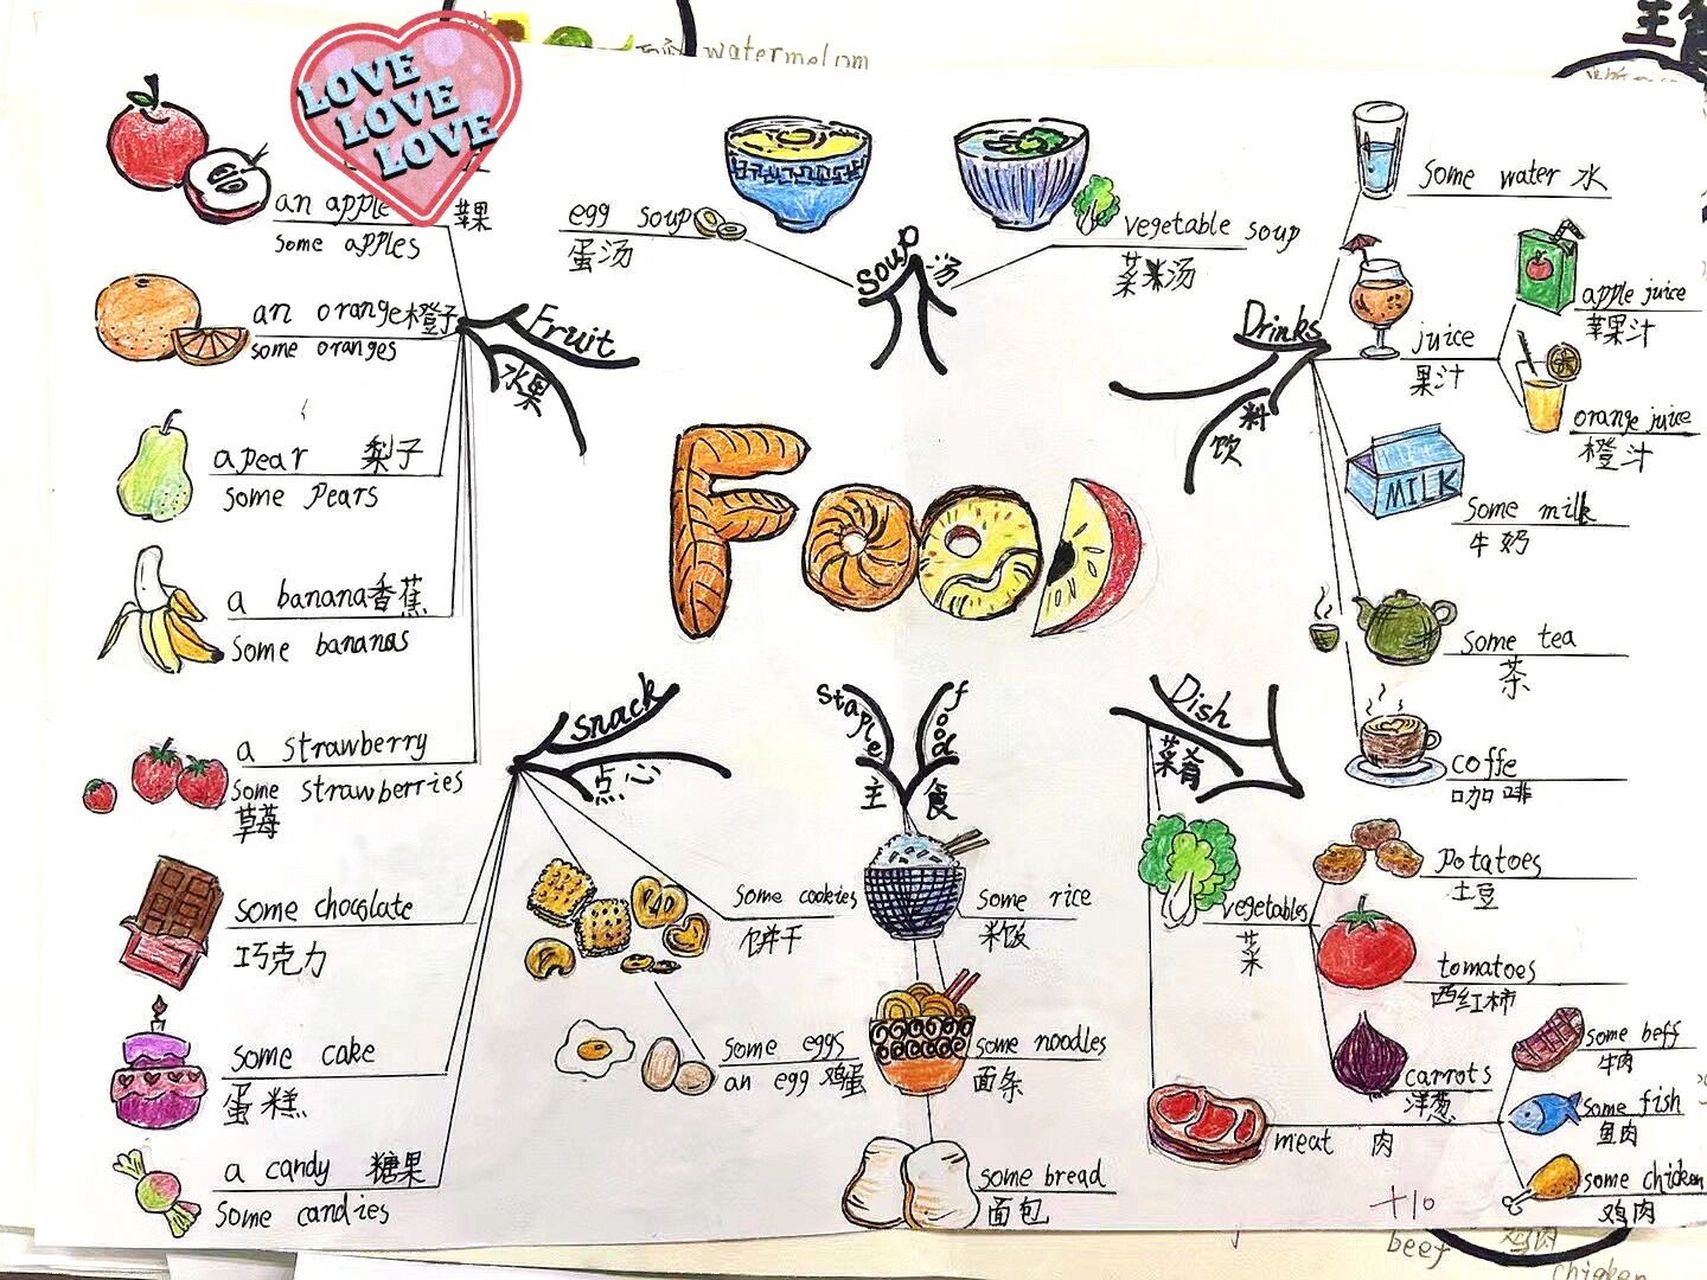 watermelom
LOVE
LOVE
LOVE
an apple 苹果
some apples
an orange 橙子
some oranges
a pear 梨子
some pears
a banana 香蕉
some bananas
a strawberry
some strawberries
草莓
Fruit
水果
egg soup
蛋汤
vegetable soup
菜米汤
Soup 汤
Drinks
饮料
some water 水
juice
果汁
apple juice
苹果汁
orange juice
橙汁
MILK
some milk
牛奶
some tea
茶
coffe
咖啡
Food
Snack
点心
some chocolate
巧克力
some cake
蛋糕
a candy 糖果
some candies
some cookies
饼干
some eggs
an egg 鸡蛋
staple food
主食
some rice
米饭
some noodles
面条
some bread
面包
Dish
菜肴
vegetables
菜
potatoes
土豆
tomatoes
西红柿
carrots
洋葱
meat 肉
some beff
牛肉
some fish
鱼肉
some chicken
鸡肉
+10
beef
鸡肉
chicken